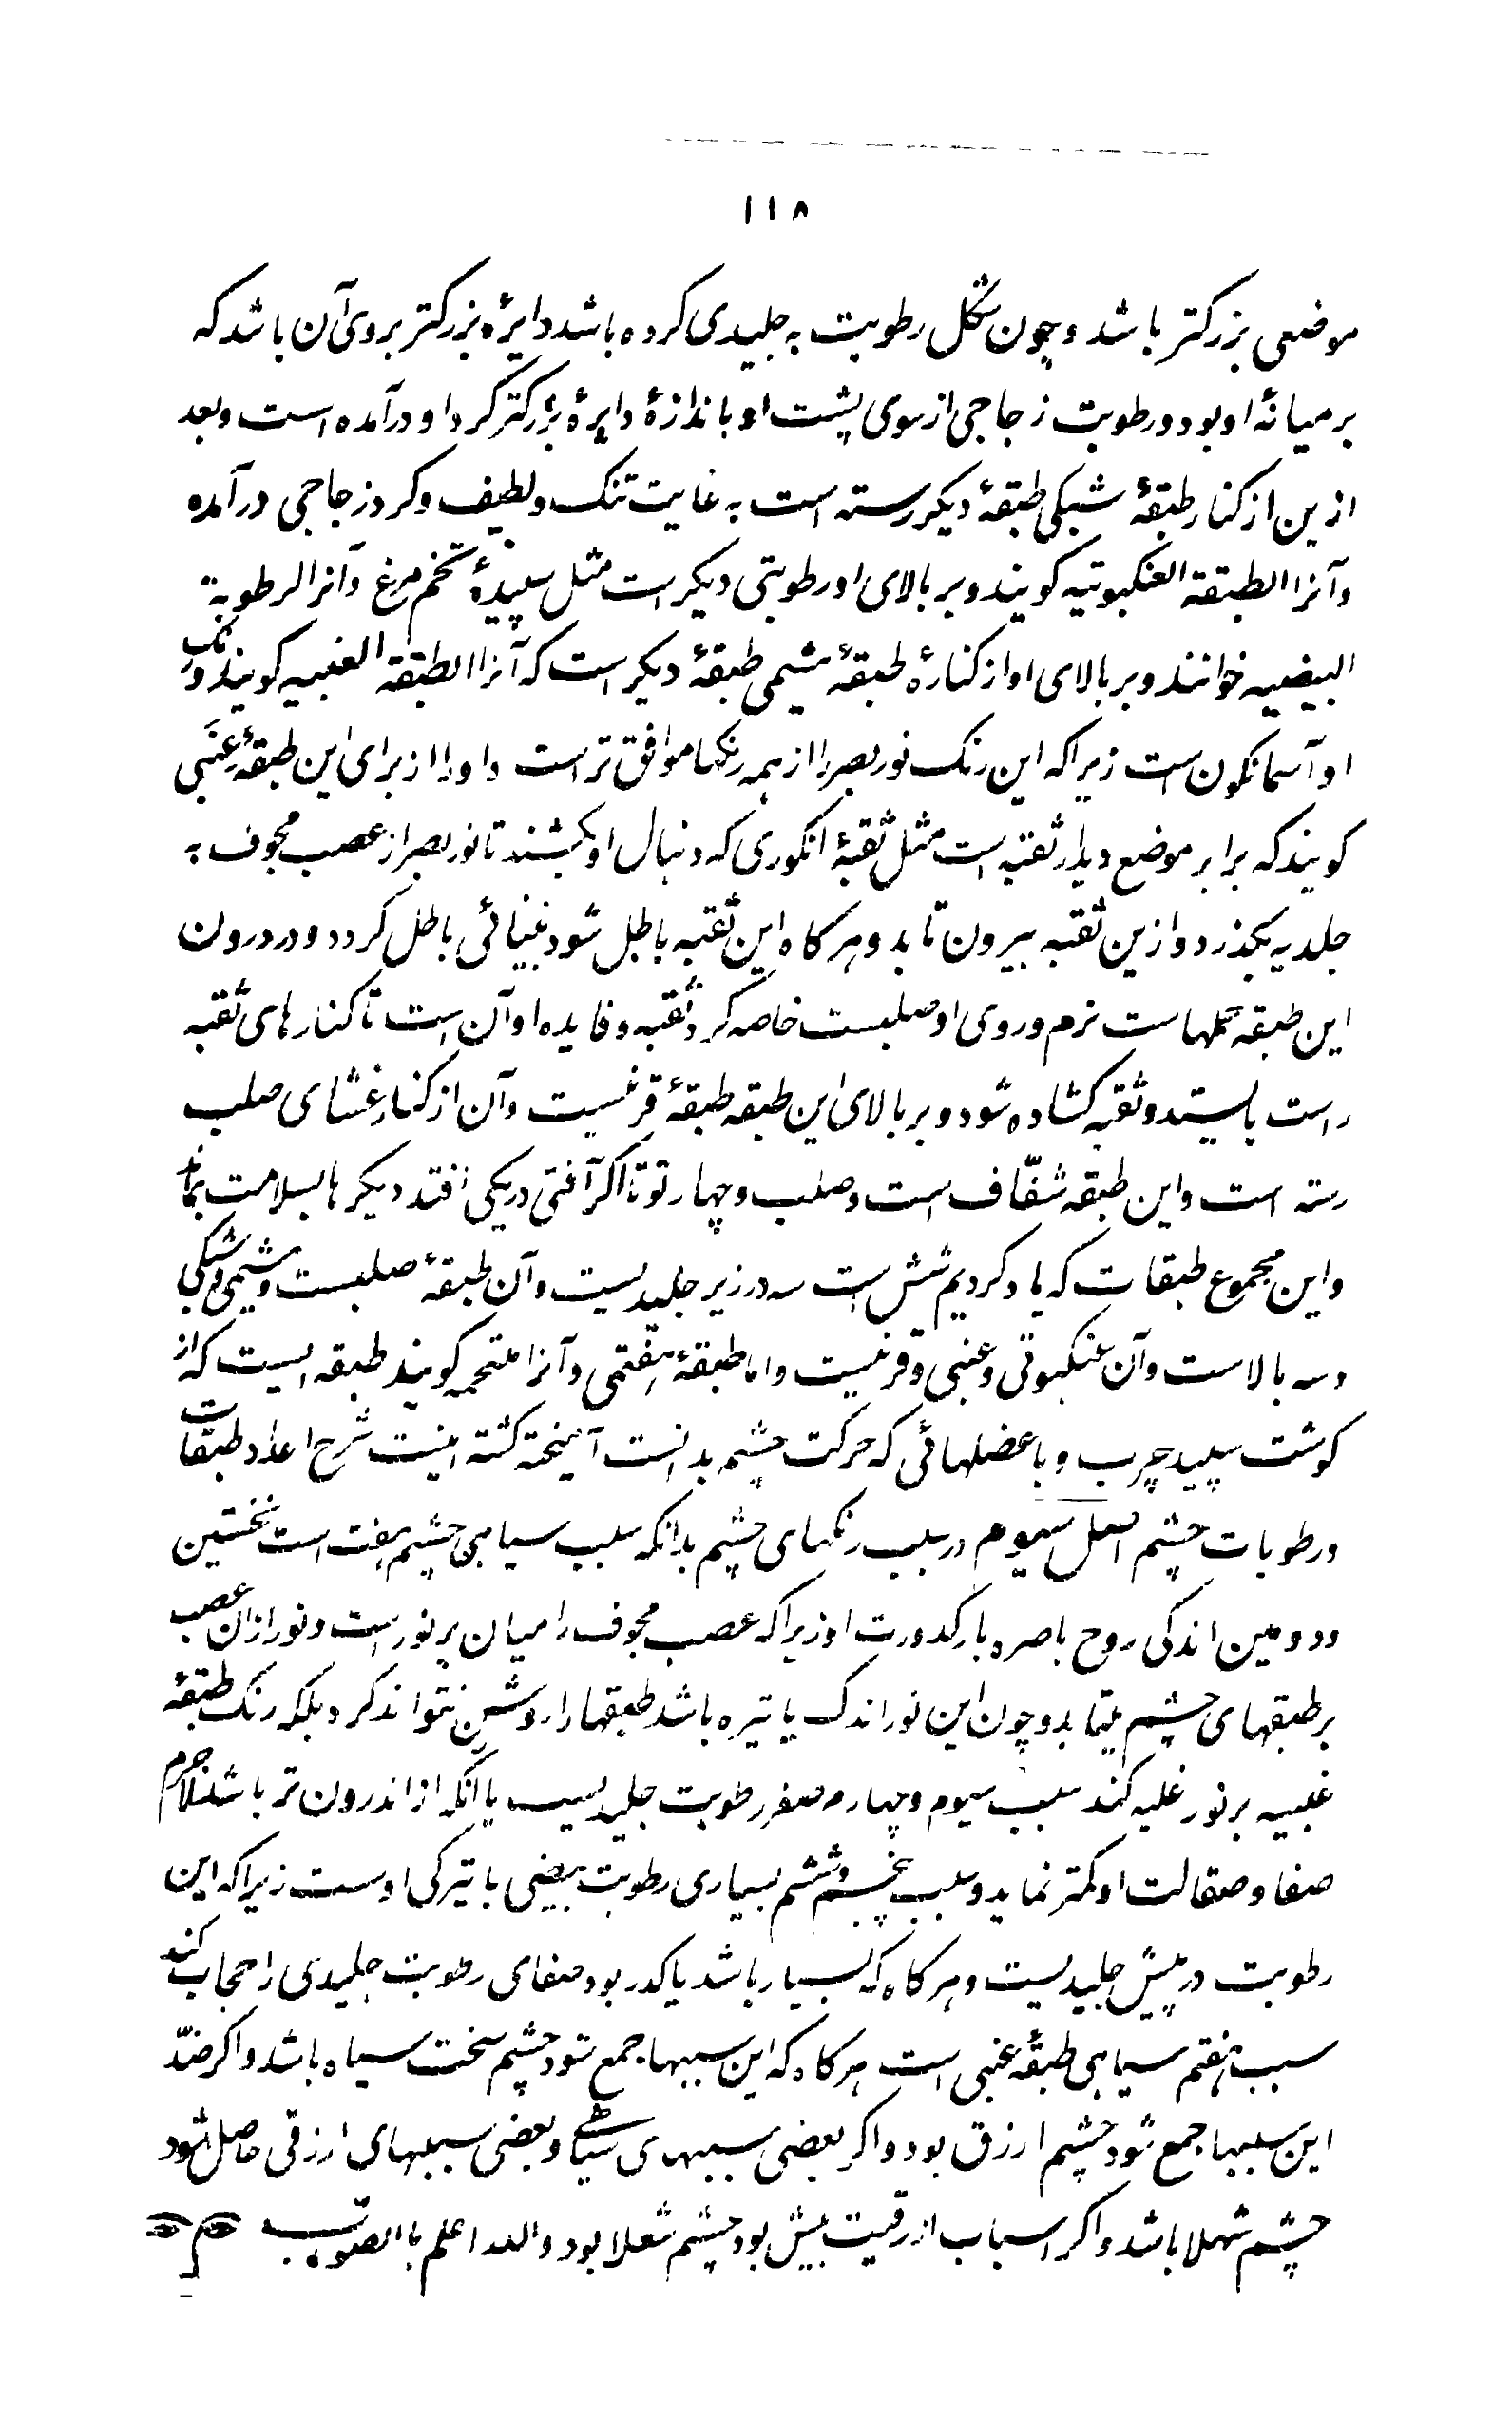 ۱۱۸
موضعی بزرکتر باشد و چون شکل رطوبت به جلیدی کرده باشد دایرهٔ بزرکتر بروی آن باشد که
بر میانهٔ او بود و رطوبت زجاجی از سوی پشت او باندازهٔ دایرهٔ بزرکتر کرد او درآمده است و بعد
ازین از کنار طبقهٔ شبکی طبقهٔ دیکر رسته است به غایت تنک و لطیف و کرد زجاجی درآمده
و آنرا الطبقة العنکبوتیه کویند و بر بالای او رطوبتی دیکر است مثل سپیدهٔ تخم مرغ و آنرا الرطوبة
البیضیه خوانند و بر بالای او از کنارهٔ طبقهٔ مشیمی طبقهٔ دیکر است که آنرا الطبقة العنبیه کویند و رنک
او آسمانکون است زیرا که این رنک نور بصر را از همه رنکها موافق تر است و او را از برای این طبقهٔ عنَبی
کویند که برابر موضع دیدار ثقبه است مثل ثقبهٔ انکوری که دنبال او بکشند تا نور بصر از عصب مجوف به
جلدیه بکذرد و ازین ثقبه بیرون تابد و هر کاه این ثقبه باطل شود بینائی باطل کردد و در درون
این طبقه خملهاست نرم و روی او صلبست خاصه کرد ثقبه و فایده او آن است تا کنارهای ثقبه
راست بایستد و ثقبه کشاده شود و بر بالای این طبقه طبقهٔ قرنیست و آن از کنار غشای صلب
رسته است و این طبقه شفّاف است و صلب و چهار تو تا اکر آفتی در یکی افتد دیکرها بسلامت بماند
و این مجموع طبقات که یاد کردیم شش است سه در زیر جلیدیست و آن طبقهٔ صلبست و مشیمی و شبکی
و سه بالاست و آن عنکبوتی و عنبی و قرنیست و اما طبقهٔ هفتمی و آنرا ملتحمه کویند طبقه ایست که از
کوشت سپید چرب و با عضلهائی که حرکت چشم بدانست آمیخته کشته اینست شرح اعداد طبقات
و رطوبات چشم فصل سیوم در سبب رنکهای چشم بدانکه سبب سیاهی چشم هفت است نخستین
و دومین اندکی روح باصره یا کدورت او زیرا که عصب مجوف را میان پر نور است و نور ازان عصب
بر طبقهای چشم میتابد و چون این نور اندک یا تیره باشد طبقها را روشن نتواند کرد بلکه رنک طبقهٔ
عنبیه بر نور غلبه کند سبب سیوم و چهارم صغر رطوبت جلیدیست یا آنکه از اندرون تر باشد لاجرم
صفا و صقالت او کمتر نماید و سبب پنجم و ششم بسیاری رطوبت بیضی یا تیرکی اوست زیرا که این
رطوبت در پیش جلیدیست و هر کاه که بسیار باشد یا کدر بود صفای رطوبت جلیدی را حجاب کند
سبب هفتم سیاهی طبقهٔ عنبی است هر کاه که این سببها جمع شود چشم سخت سیاه باشد و اکر ضدّ
این سببها جمع شود چشم ارزق بود و اکر بعضی سببهای سیاهی و بعضی سببهای ارزقی حاصل شود
چشم شهلا باشد و اکر اسباب ازرقیت بیش بود چشم شعلا بود والله اعلم باالصّواب